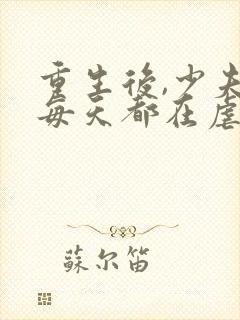 重生後,少夫
每天都在虐
蘇尔笛